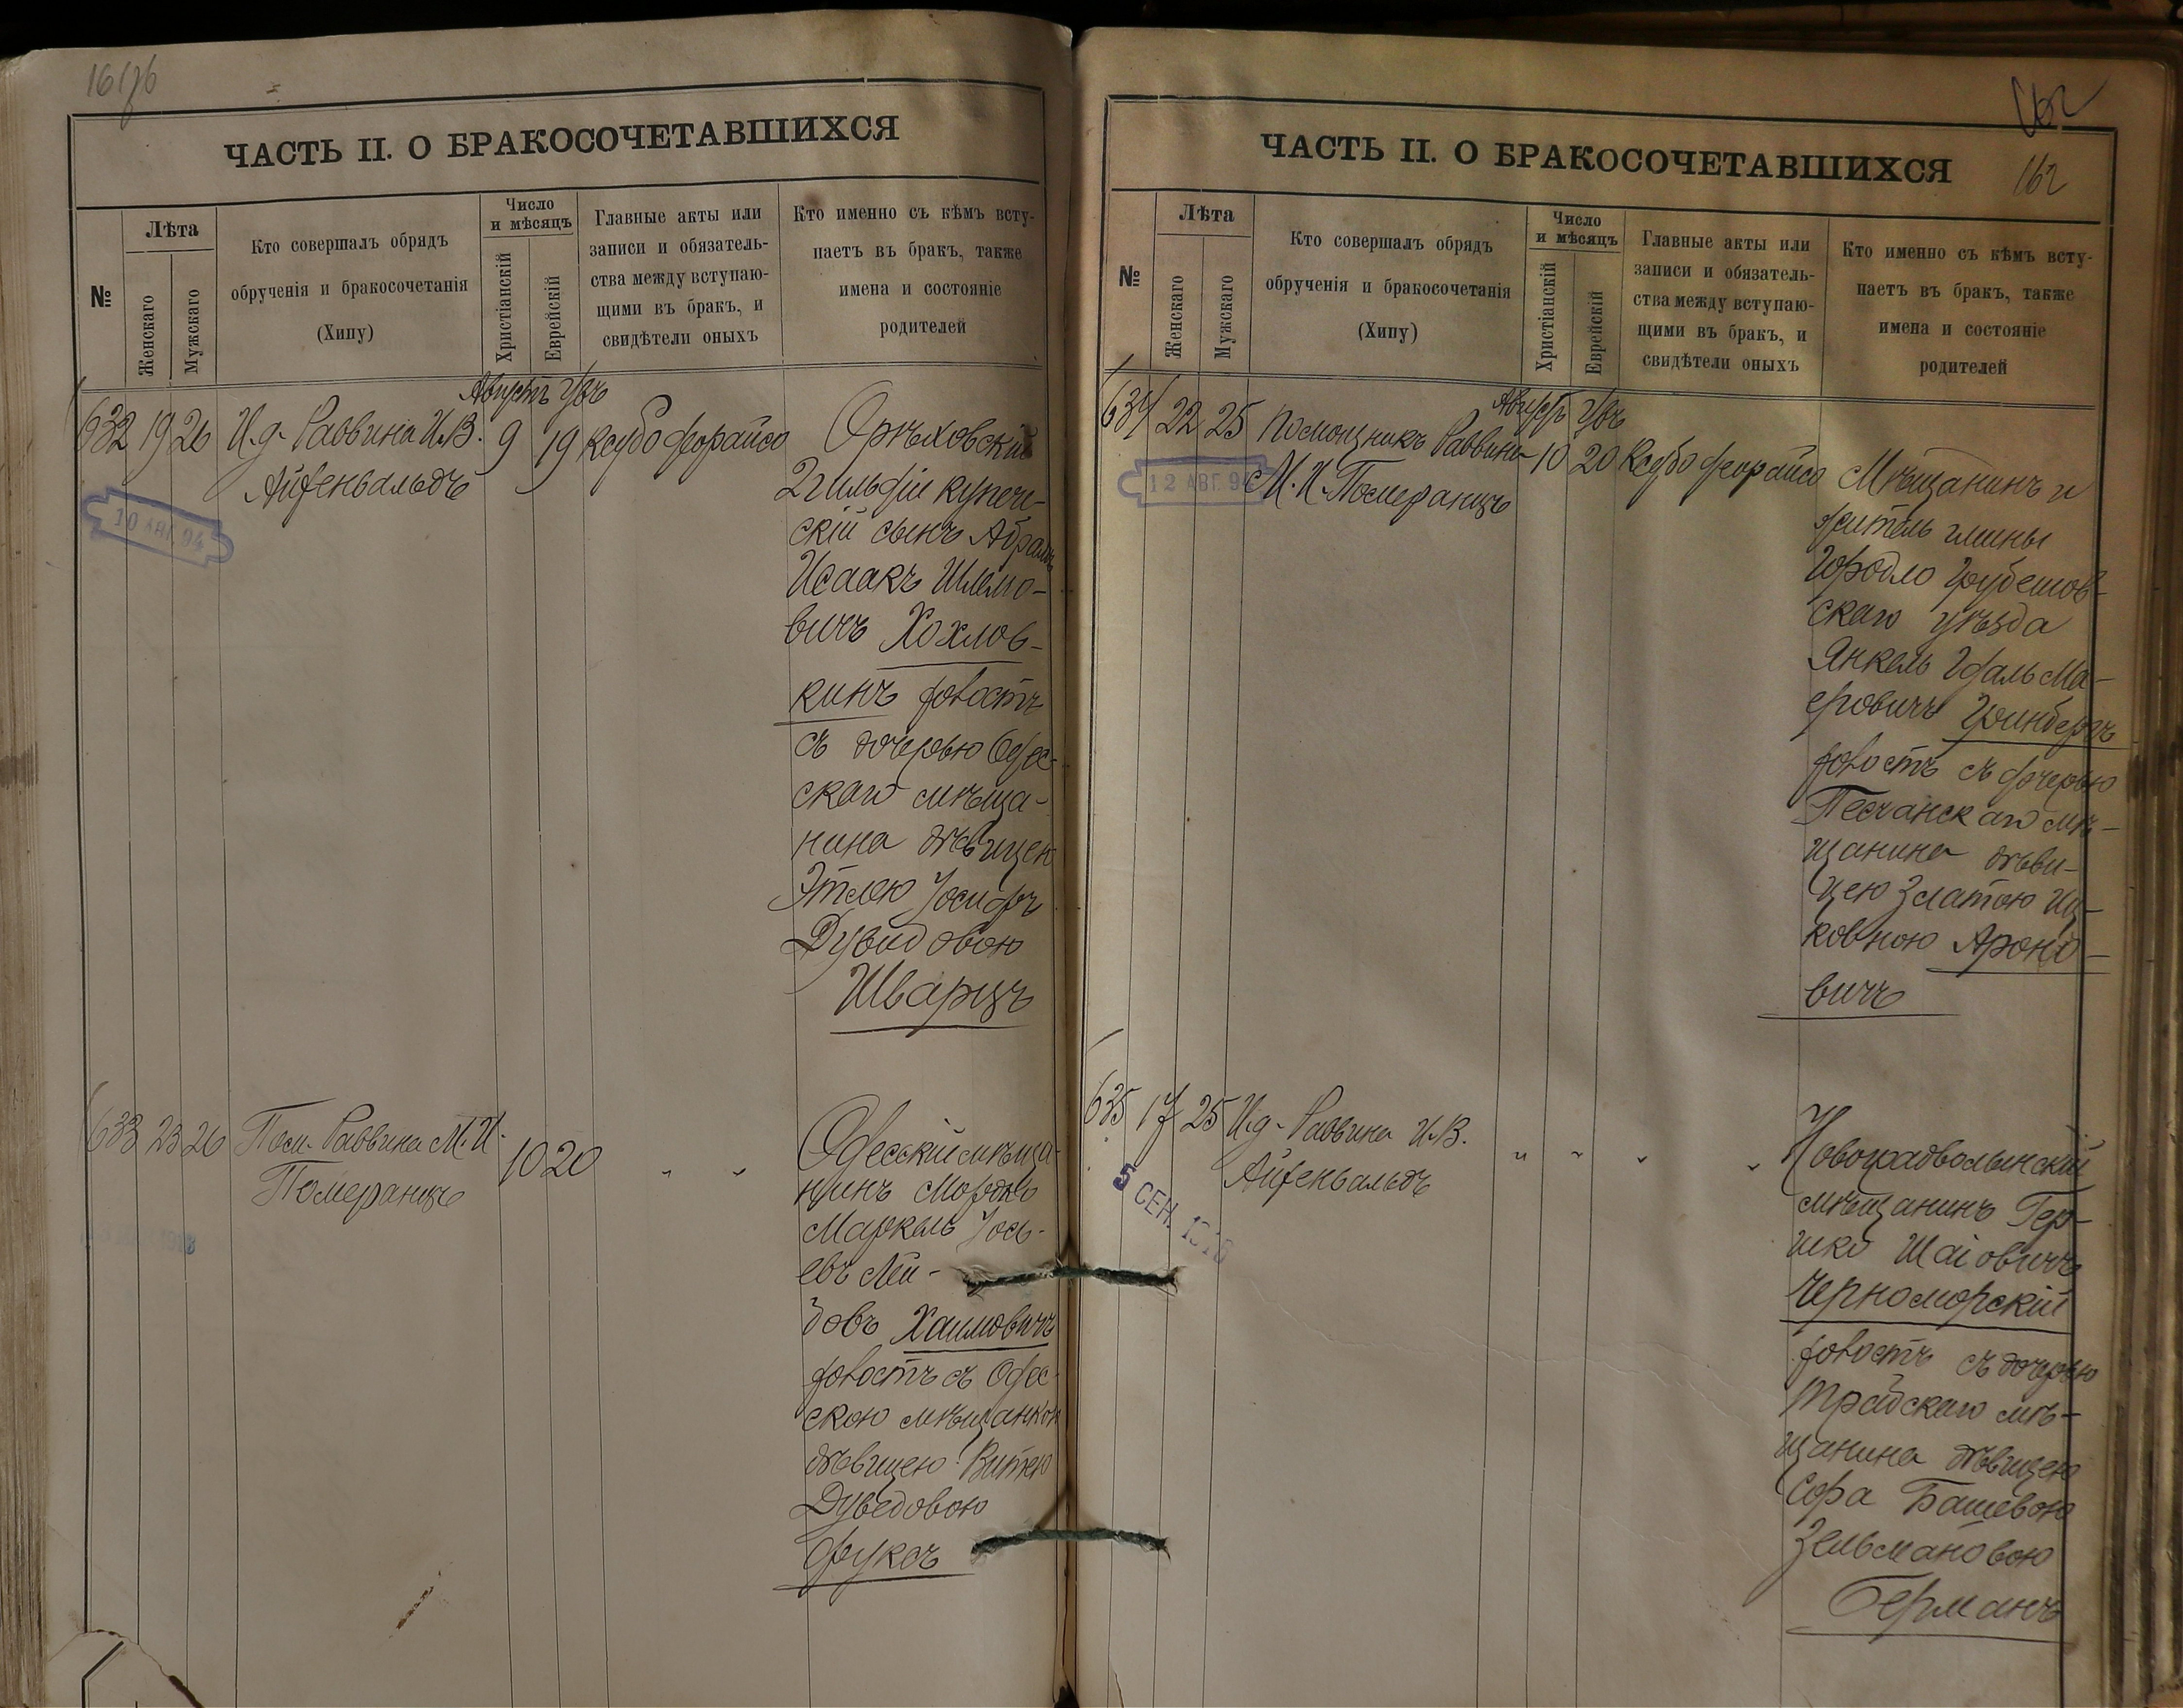 ЧАСТЬ II. О БРАКОСОЧЕТАВШИХСЯ
№
Лѣта
Женскаго
Мужскаго
Кто совершалъ обрядъ
обрученія и бракосочетанія
(Хипу)
Число
и мѣсяцъ
Христіанскій
Еврейскій
Главные акты или
записи и обязатель-
ства между вступаю-
щими въ бракъ, и
свидѣтели оныхъ
Кто именно съ кѣмъ всту-
паетъ въ бракъ, также
имена и состояніе
родителей
Августъ
632 19 26 И.д. Раввина И.В. 9 19
Айзенвальдъ
10 АВГ. 94
Орѣховскій
2 гильдіи купече-
скій сынъ Абрамъ
Исаакъ Шлемо-
вичъ Хохлов-
кинъ холостъ
съ дочерью Одес-
скаго мѣща-
нина дѣвицею
Этлею Іосифъ
Дувидовою
Шварцъ
633 23 26 Пом. Раввина М.И. 10 20 " "
Померанцъ
Одесскій мѣща-
нинъ Мордко
Маркель Іось-
евъ Лей-
бовъ Хаимовичъ
холостъ съ Одес-
скою мѣщанкою
дѣвицею
Дуведовою
Фуксъ
ЧАСТЬ II. О БРАКОСОЧЕТАВШИХСЯ
162
№
Лѣта
Женскаго
Мужскаго
Кто совершалъ обрядъ
обрученія и бракосочетанія
(Хипу)
Число
и мѣсяцъ
Христіанскій
Еврейскій
Главные акты или
записи и обязатель-
ства между вступаю-
щими въ бракъ, и
свидѣтели оныхъ
Кто именно съ кѣмъ всту-
паетъ въ бракъ, также
имена и состояніе
родителей
Августъ
634 22 25 Помощникъ Раввина 10 20
М.И. Померанцъ
12 АВГ. 94
Мѣщанинъ и
житель гмины
Городло Грубешов-
скаго уѣзда
Янкель Гдаль Ма-
еровичъ Гринбергъ
холостъ съ дочерью
Песчанскаго мѣ-
щанина дѣви-
цею Златою Иц-
ковною Ароно-
вичъ
635 17 25 И.д. Раввина И.В. " " " "
Айзенвальдъ
5 СЕН. 1916
Новоградволынскій
мѣщанинъ Гер-
шко Шаіовичъ
Черноморскій
холостъ съ дочерью
мѣ-
щанина дѣвицею
Сора Башевою
Зельмановою
Германъ